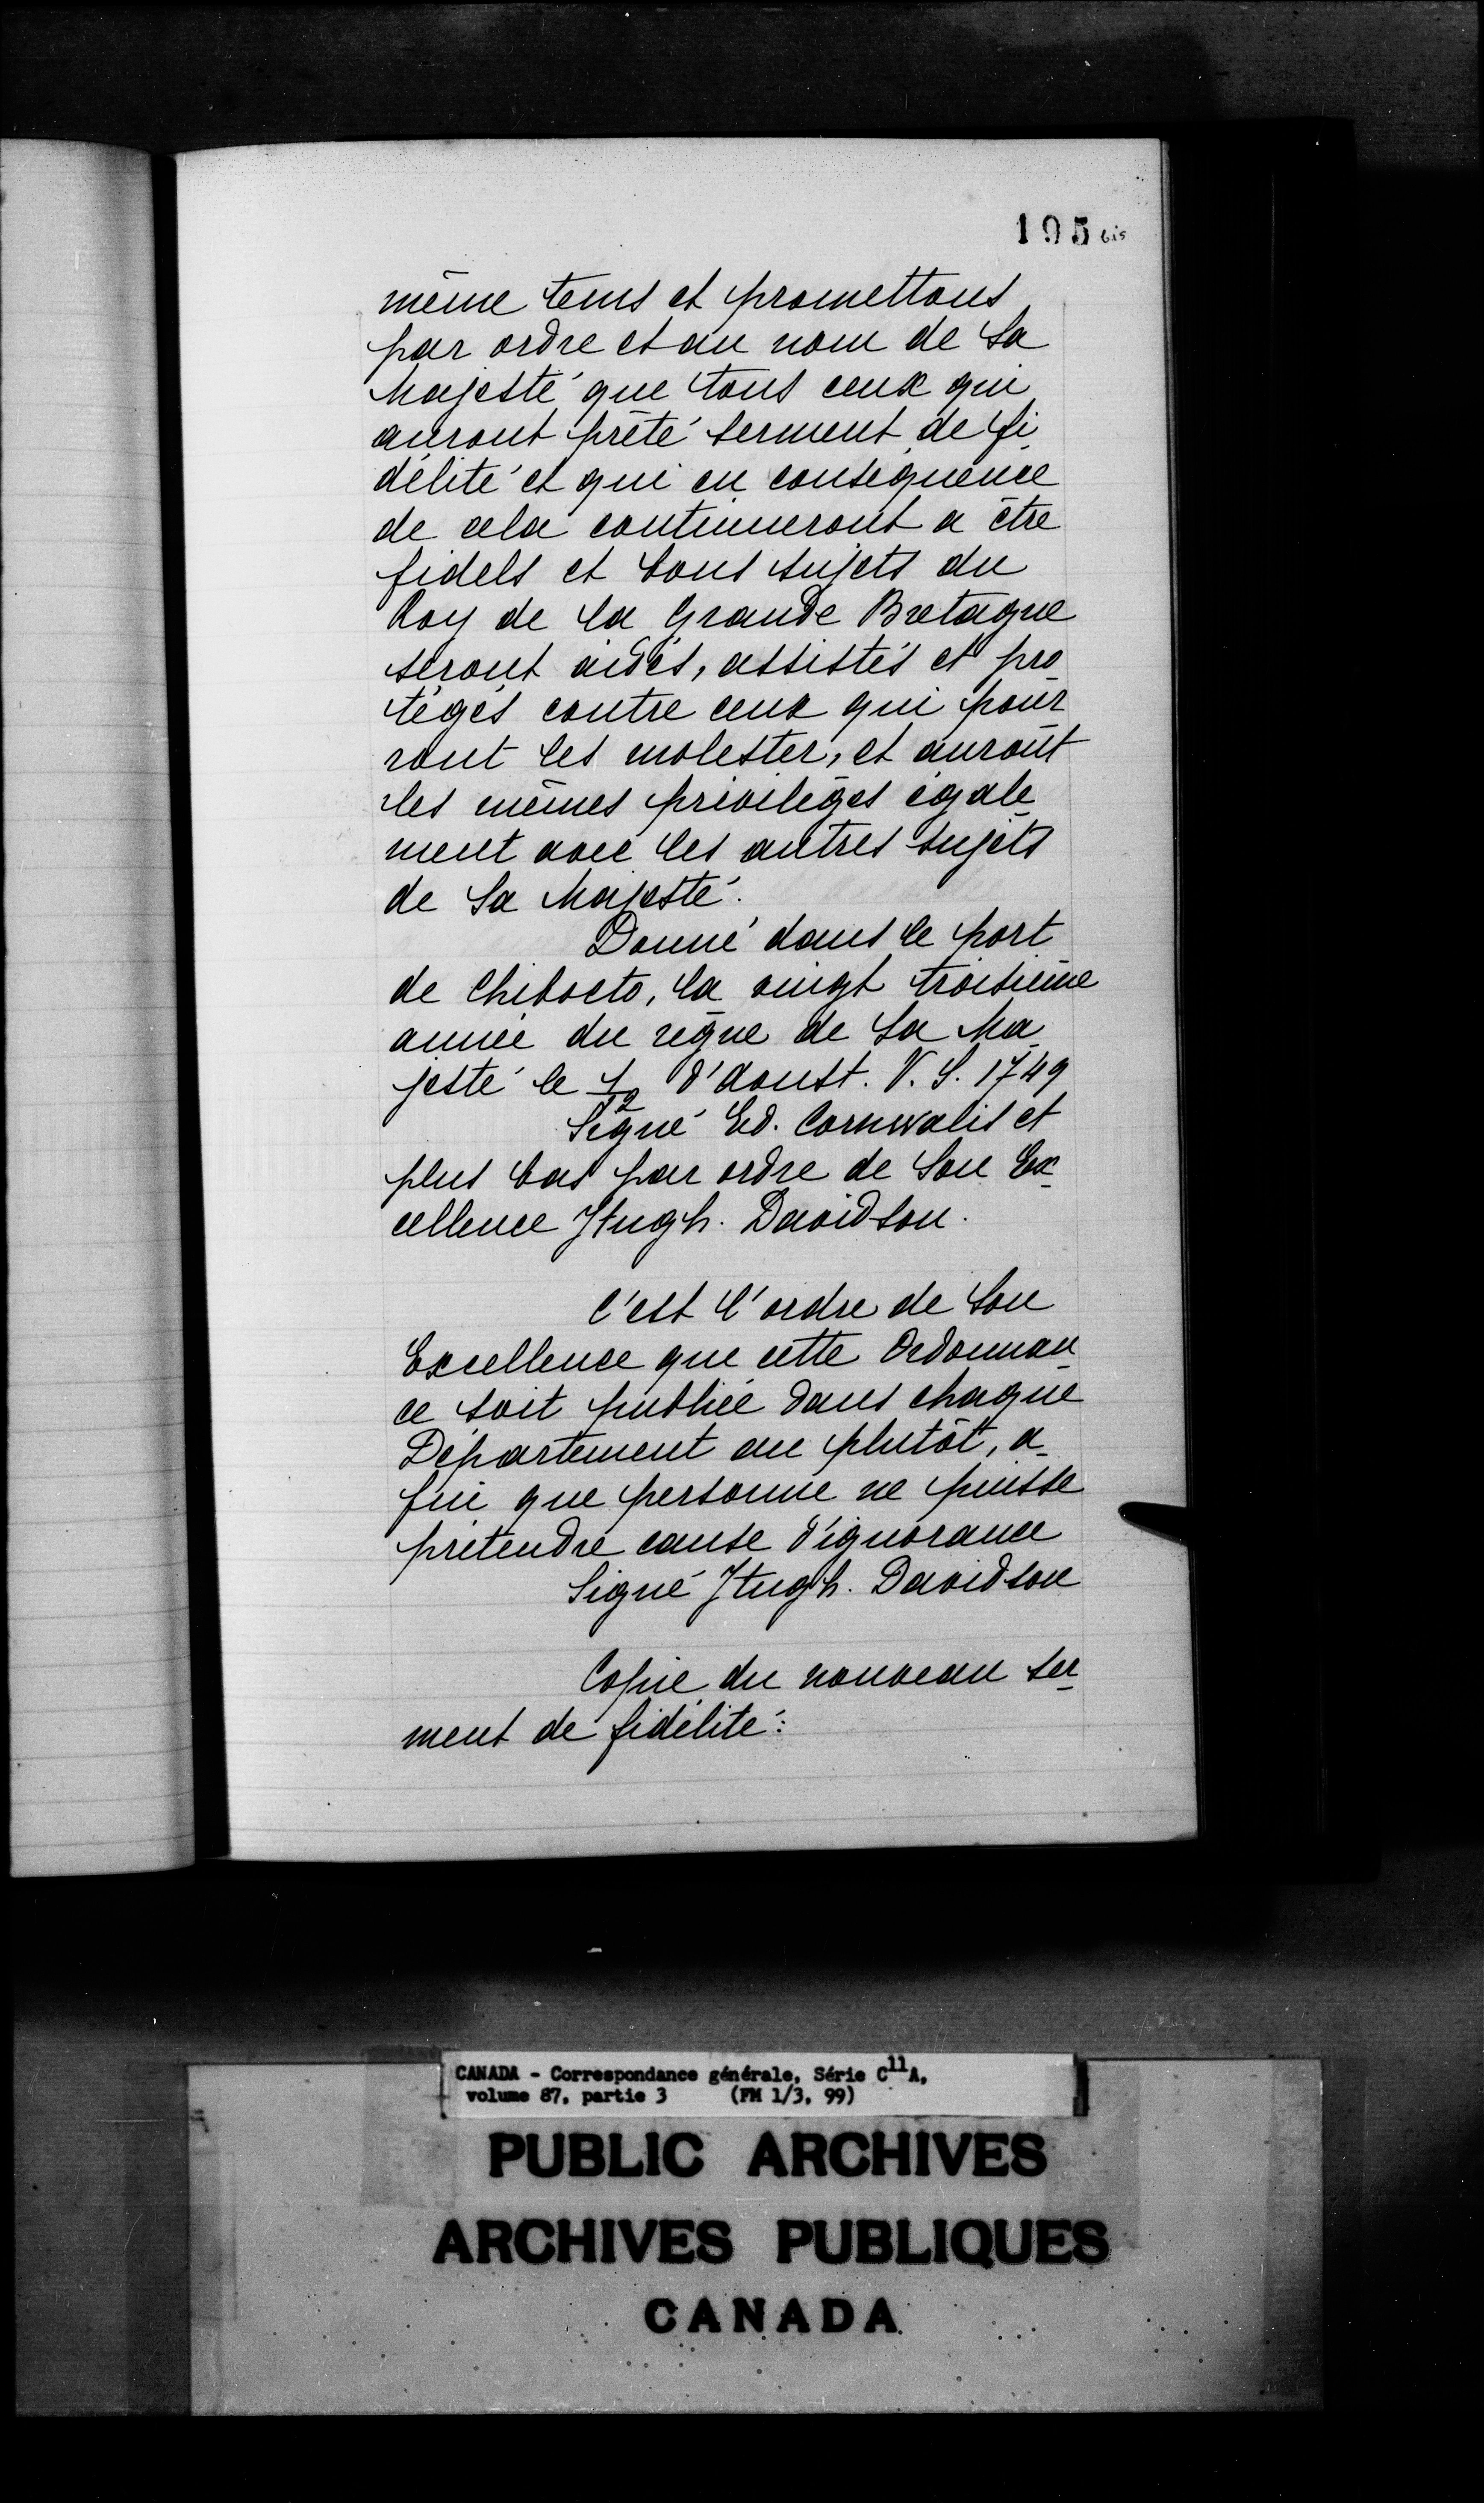 195 bis
même tems et promettons
par ordre et au nom de Sa
Majesté que tous ceux qui
auront prêté serment de fi-
délité et qui en conséquence
de cela continueront a être
fidels et bons sujets du
Roy de la Grande Bretagne
seront aidés, assistés et pro-
tégés contre ceux qui pour-
ront les molester, et auront
les mêmes privilèges égale-
ment avec les autres sujets
de Sa Majesté.
Donné dans le port
de Chibocto, la vingt troisième
année du règne de Sa Ma-
jesté le 1/12 d'Aoust. V. S. 1749
Signé Ed. Cornwalis et
plus bas par ordre de Son Ex-
cellence Hugh. Davidson.
C'est l'ordre de Son
Excellence que cette Ordonnan-
ce soit publiée dans chaque
Département au plutôt, a-
fin que personne ne puisse
prétendre cause d'ignorance
Signé Hugh. Davidson
Copie du nouveau ser-
ment de fidélité:
CANADA - Correspondance générale, Série C11A,
volume 87, partie 3 (FM 1/3, 99)
PUBLIC ARCHIVES
ARCHIVES PUBLIQUES
CANADA